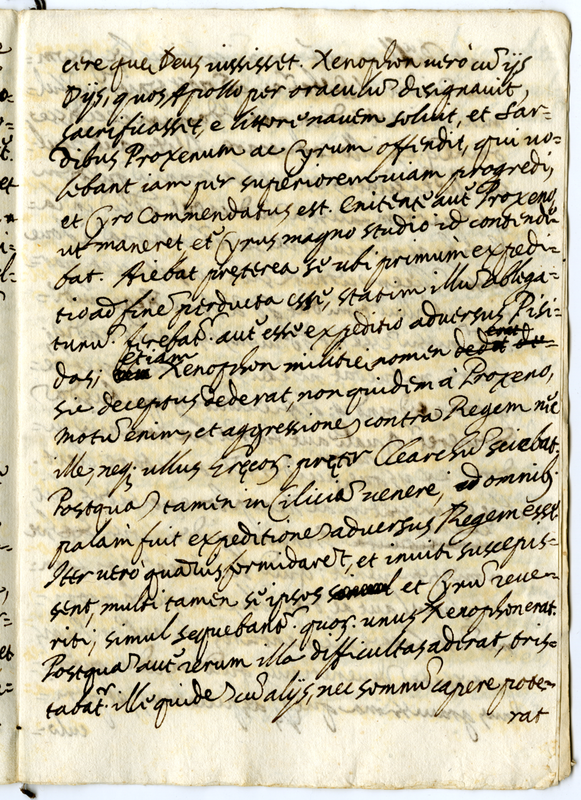 cere quę Deus iussisset. Xenophon verò cũ ijs
Dijs, quos Apollo per oraculũ designavit,
sacrificasset, e littore navem solvit, et Sar=
dibus Proxenum ac Cyrum offendit, qui vo=
lebant iam per superiorem viam progredi,
et Cyro Commendatus est. Enitente aut̃ Proxeno,
ut maneret et Cyrus magno studio id contende
bat. Aiebat pręterea se ubi primum expedi=
tio ad finẽ perducta esset, statim illũ ablega=
turũ. ferebat̃ aut̃ esse expeditio adversus Pisi=
das; etiam Xenophon militię nomen
sic deceptus dederat, non quidem à Proxeno,
motũ enim, et aggressionẽ contra Regem nec
ille, neq; ullus Gręcor̃ pręter Clearchũ sciebat.
Postquã tamen in Ciliciã venere, omnib;
palam fuit expeditionẽ adversus Regem esse.
Iter verò quãvis formidarẽt, et inviti suscepis=
sent, multi tamen se ipsos simul et Cyrũ reve=
riti, simul sequebant̃ quos unus Xenophon erat.
Postquã aut̃ rerum illa difficultas aderat, tris=
tabat̃ ille quidẽ cũ alijs, nec somnũ capere pote=
rat